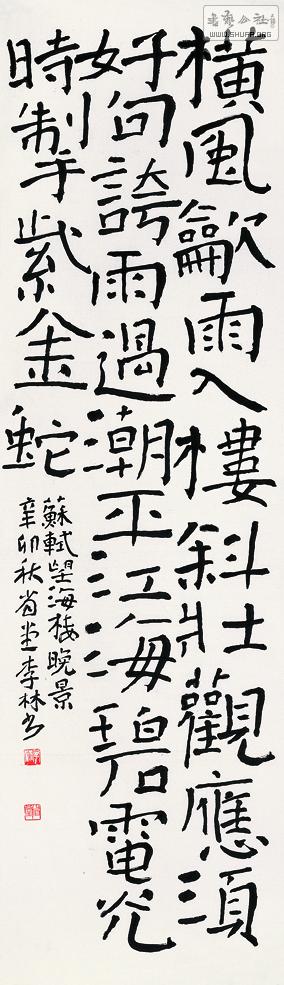 橫風龡雨入樓斜壯觀應須
好句誇雨過潮平江海碧電光
時掣紫金蛇
蘇軾望海樓晚景
辛卯秋堂李林书
書藝公社
WWW.SHUFA.ORG